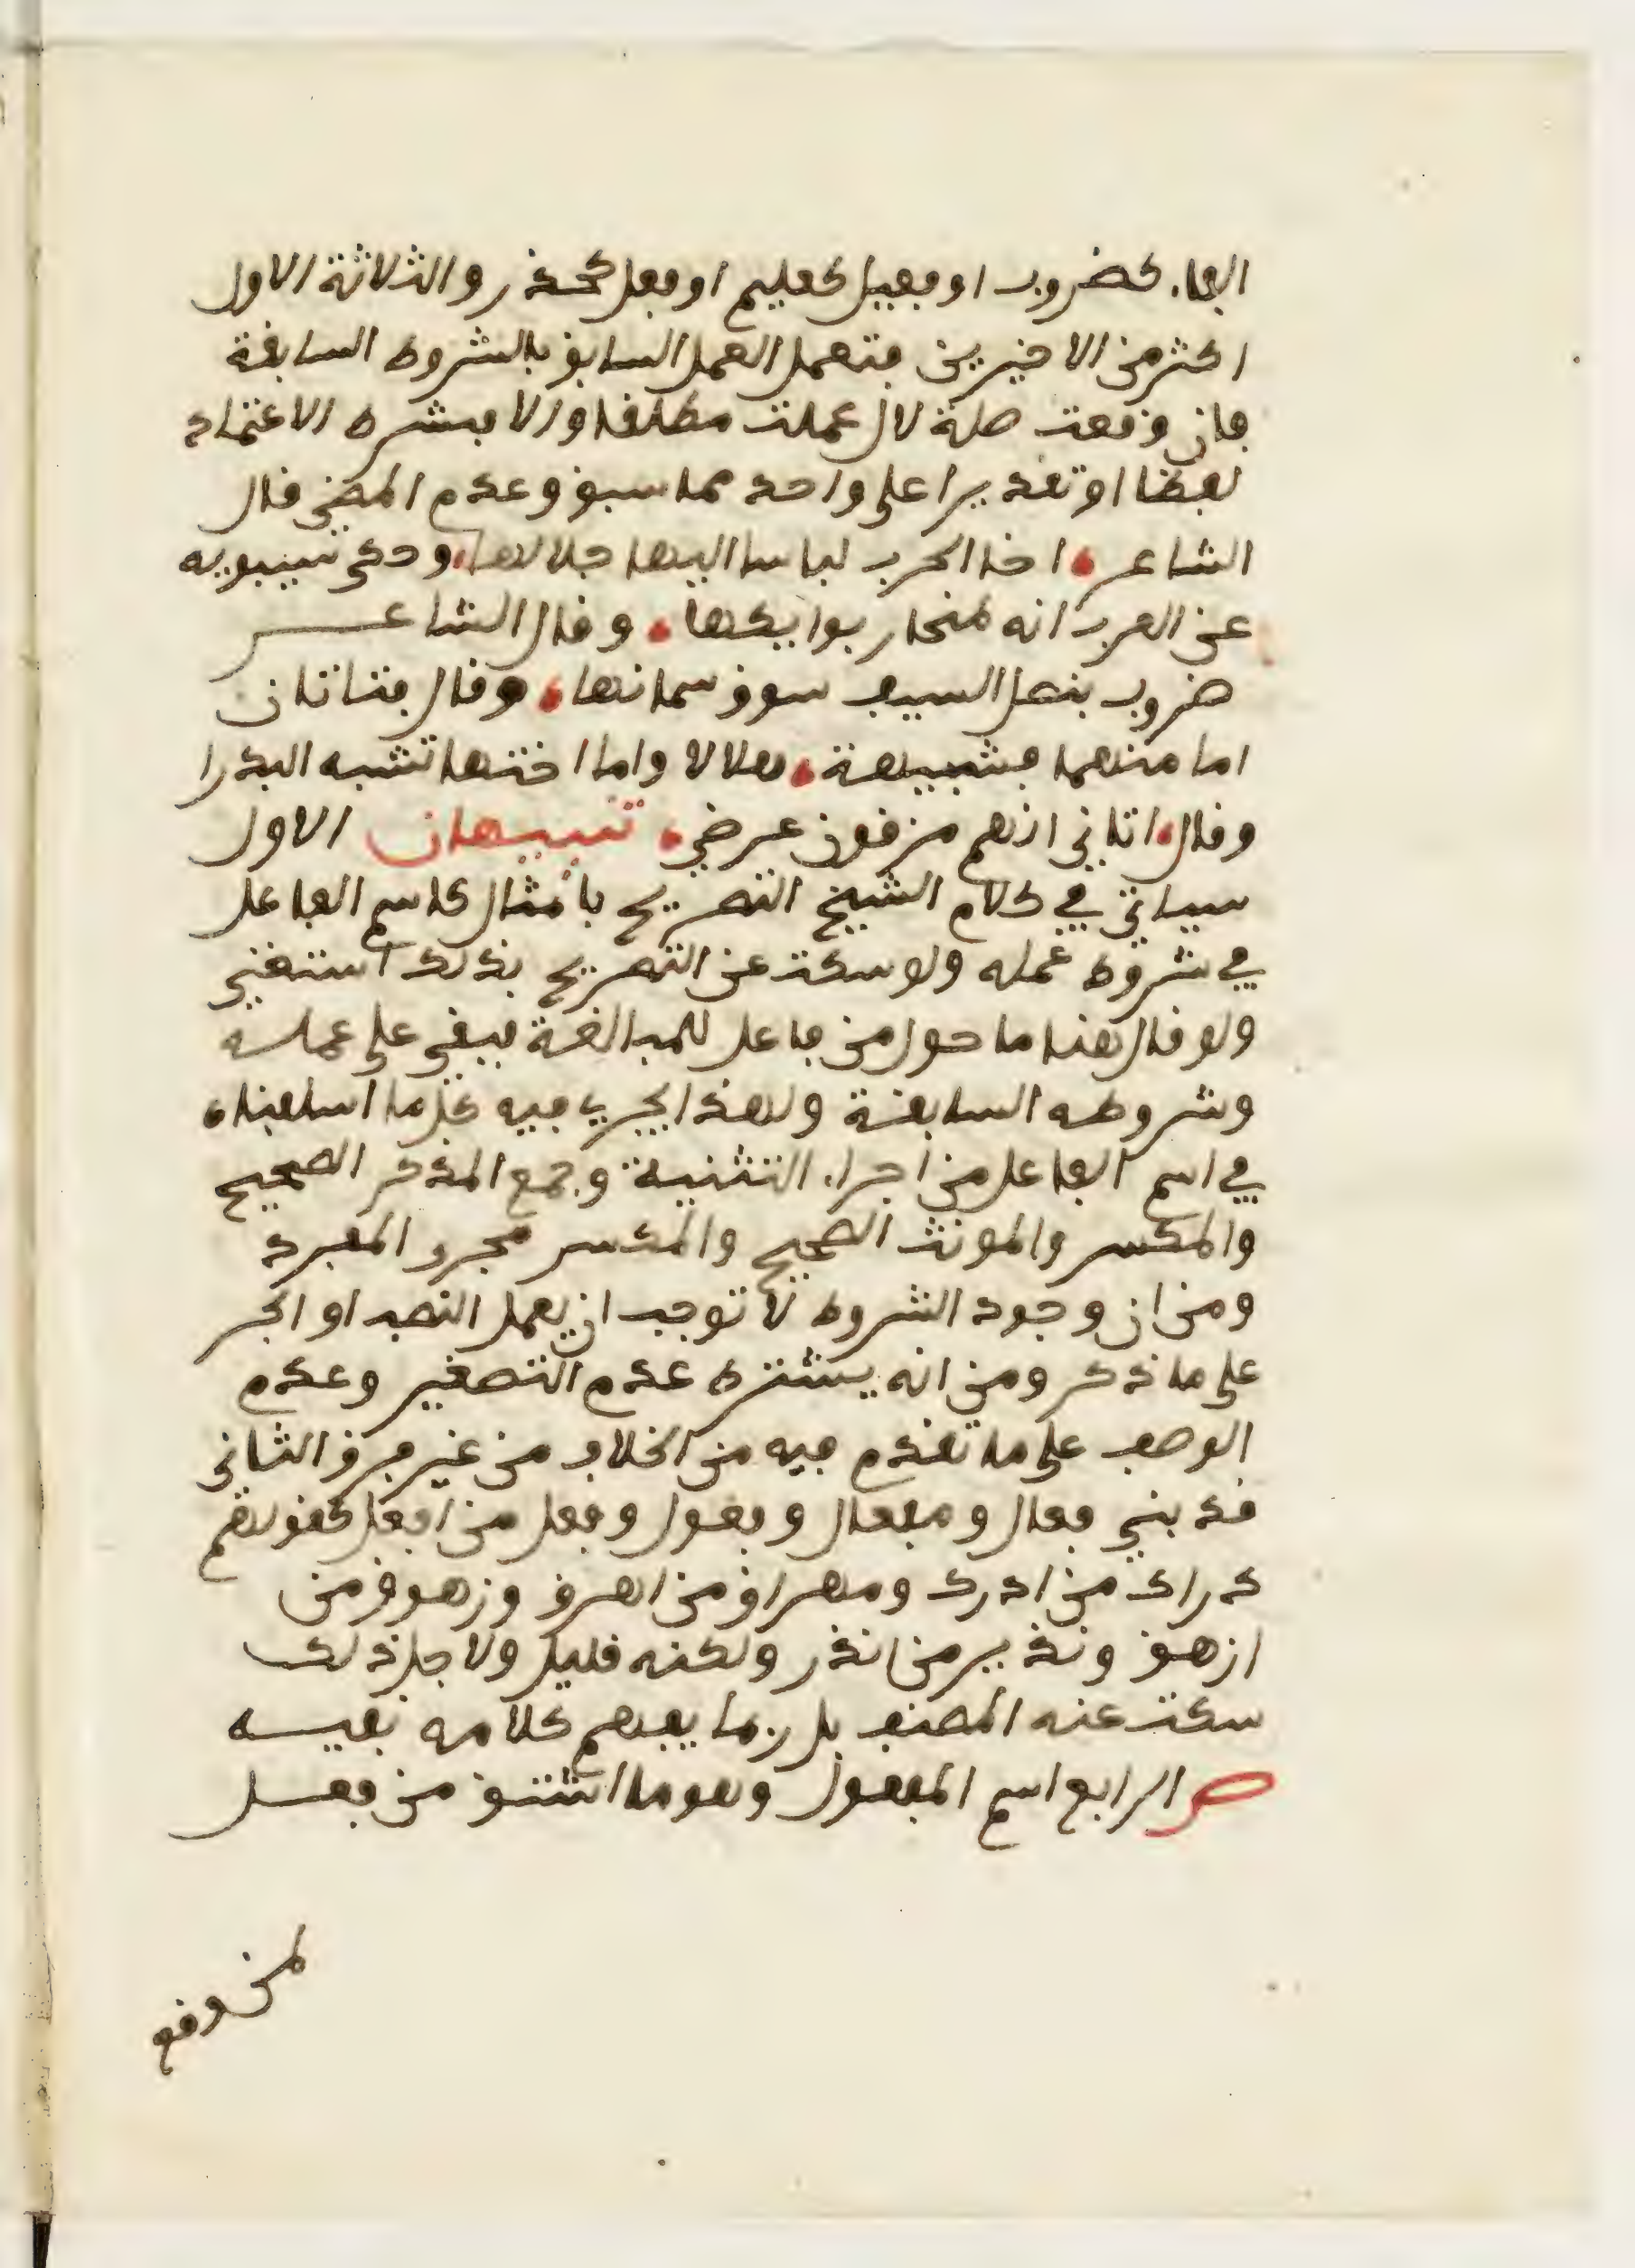 الفاء كضروب او فعيل كعليم او فعل كحذر والثلاثة الاول
اكثر من الاخيرين فتعمل العمل السابق بالشروط السابقة
فان وقعت صلة لال عملت مطلقا والا فبشرط الاعتماد
لفظا او تقديرا على واحد مما سبق وعدم المضي قال
الشاعر اخا الحرب لباسا اليها جلالها وحكى سيبويه
عن العرب انه لمنحار بوايكها وقال الشاعر
ضروب بنصل السيف سوق سمانها وقال فتاتان
اما منهما فشبيهة هلالا واما اختها تشبه البدرا
وقال اتاني انهم مزقون عرضي تنبيهان الاول
سياتي في كلام الشيخ التصريح بامثال كاسم الفاعل
في شروط عمله ولو سكت عن التصريح بذلك استغني
ولو قال هنا ما حول من فاعل للمبالغة فيبقى على عمله
وشروطه السابقة ولهذا يجري فيه كل ما اسلفناه
في اسم الفاعل من اجراء التثنية وجمع المذكر الصحيح
والمكسر والمونث الصحيح والمكسر مجرد المفرد
ومن ان وجود الشروط لا توجب ان يعمل النصب او الجر
على ما ذكر ومن انه يشترط عدم التصغير وعدم
الوصف على ما تقدم فيه من الخلاف من غير فرق الثاني
قد بني فعال ومفعال وفعول وفعل من افعل كقولهم
دراك من ادرك ومهراق من اهرق وزهوق من
ازهق ونذير من انذر ولكنه قليل ولاجل ذلك
سكت عنه المصنف بل ربما يفهم كلامه نفيه
ص الرابع اسم المفعول وهو ما اشتق من فعل
لمن وقع